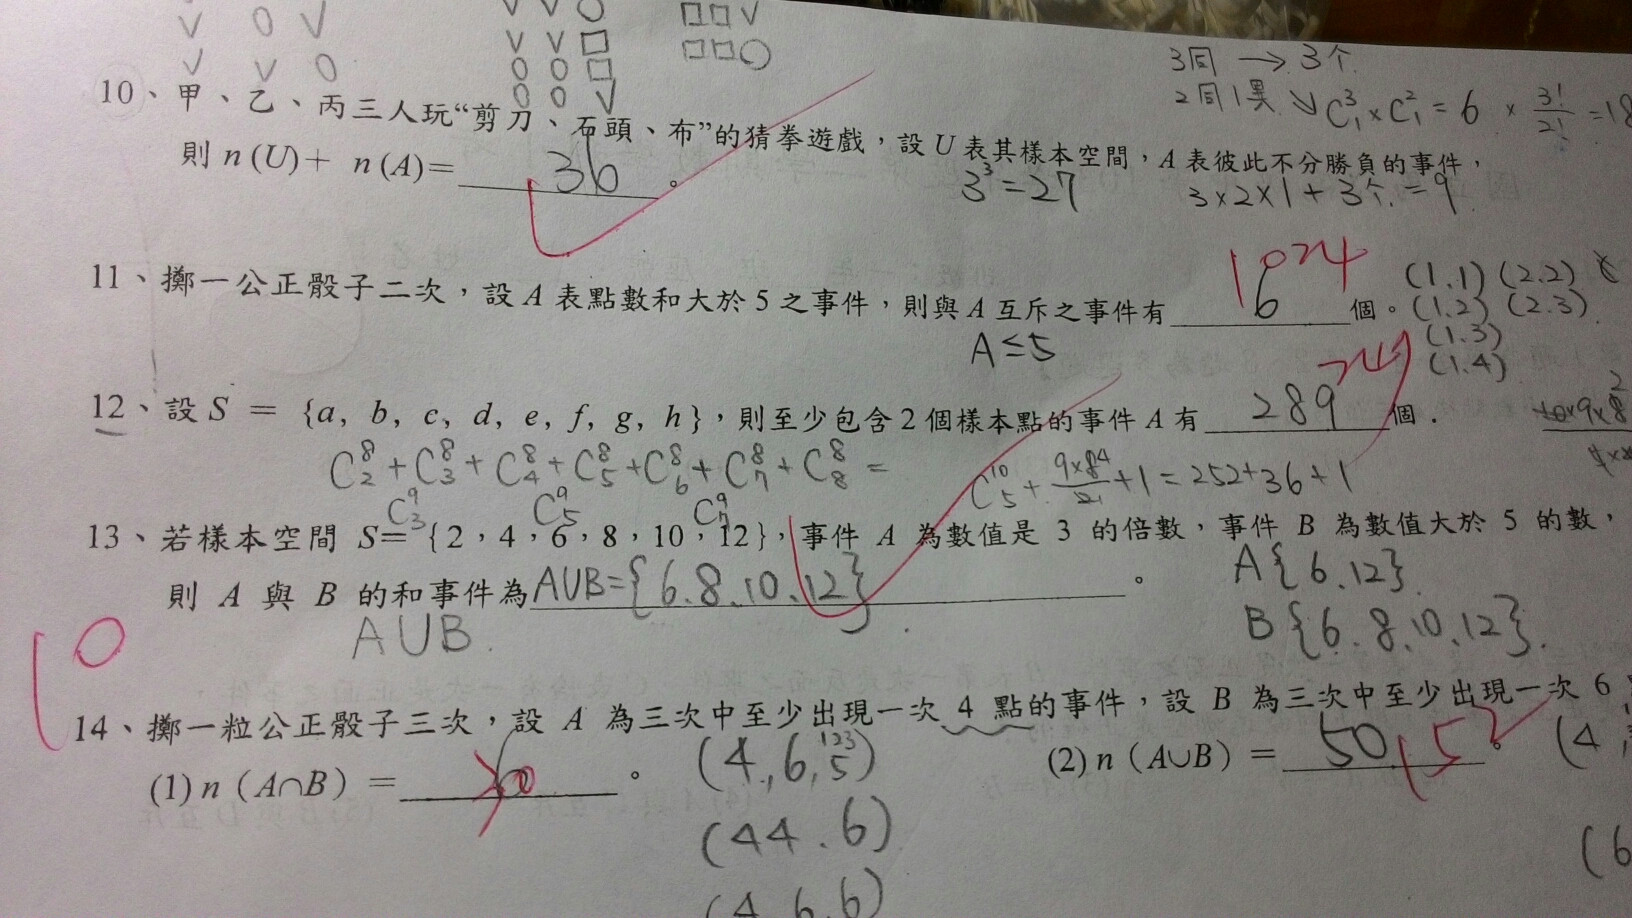 V O V
V V O
V V O
V V □
O O □
O O V
□□V
□□O
3同 → 3个
2同1異 ↘ C³₁×C²₁ = 6 × 3!/2! = 18
10、甲、乙、丙三人玩“剪刀、石頭、布”的猜拳遊戲，設 U 表其樣本空間，A 表彼此不分勝負的事件，
則 n (U)+ n (A)= 36 。
3³=27
3×2×1+3个=9
11、擲一公正骰子二次，設 A 表點數和大於 5 之事件，則與 A 互斥之事件有 6 個。
1024
A≤5
(1.1) (2.2)
(1.2) (2.3)
(1.3)
(1.4)
12、設 S = {a, b, c, d, e, f, g, h}，則至少包含 2 個樣本點的事件 A 有 289 個．
C⁸₂+C⁸₃+C⁸₄+C⁸₅+C⁸₆+C⁸₇+C⁸₈=
C⁹₃ C⁹₅ C⁹₇
C¹⁰₅+ +1=252+36+1
13、若樣本空間 S={2，4，6，8，10，12}，事件 A 為數值是 3 的倍數，事件 B 為數值大於 5 的數，
則 A 與 B 的和事件為 AUB={6.8.10.12} 。
AUB.
A{6.12}.
B{6.8.10.12}.
10
14、擲一粒公正骰子三次，設 A 為三次中至少出現一次 4 點的事件，設 B 為三次中至少出現一次 6
(1) n (A∩B) = 。
(4,6,1235)
(2) n (A∪B) = 50 。
(44.6)
(4.6.6)